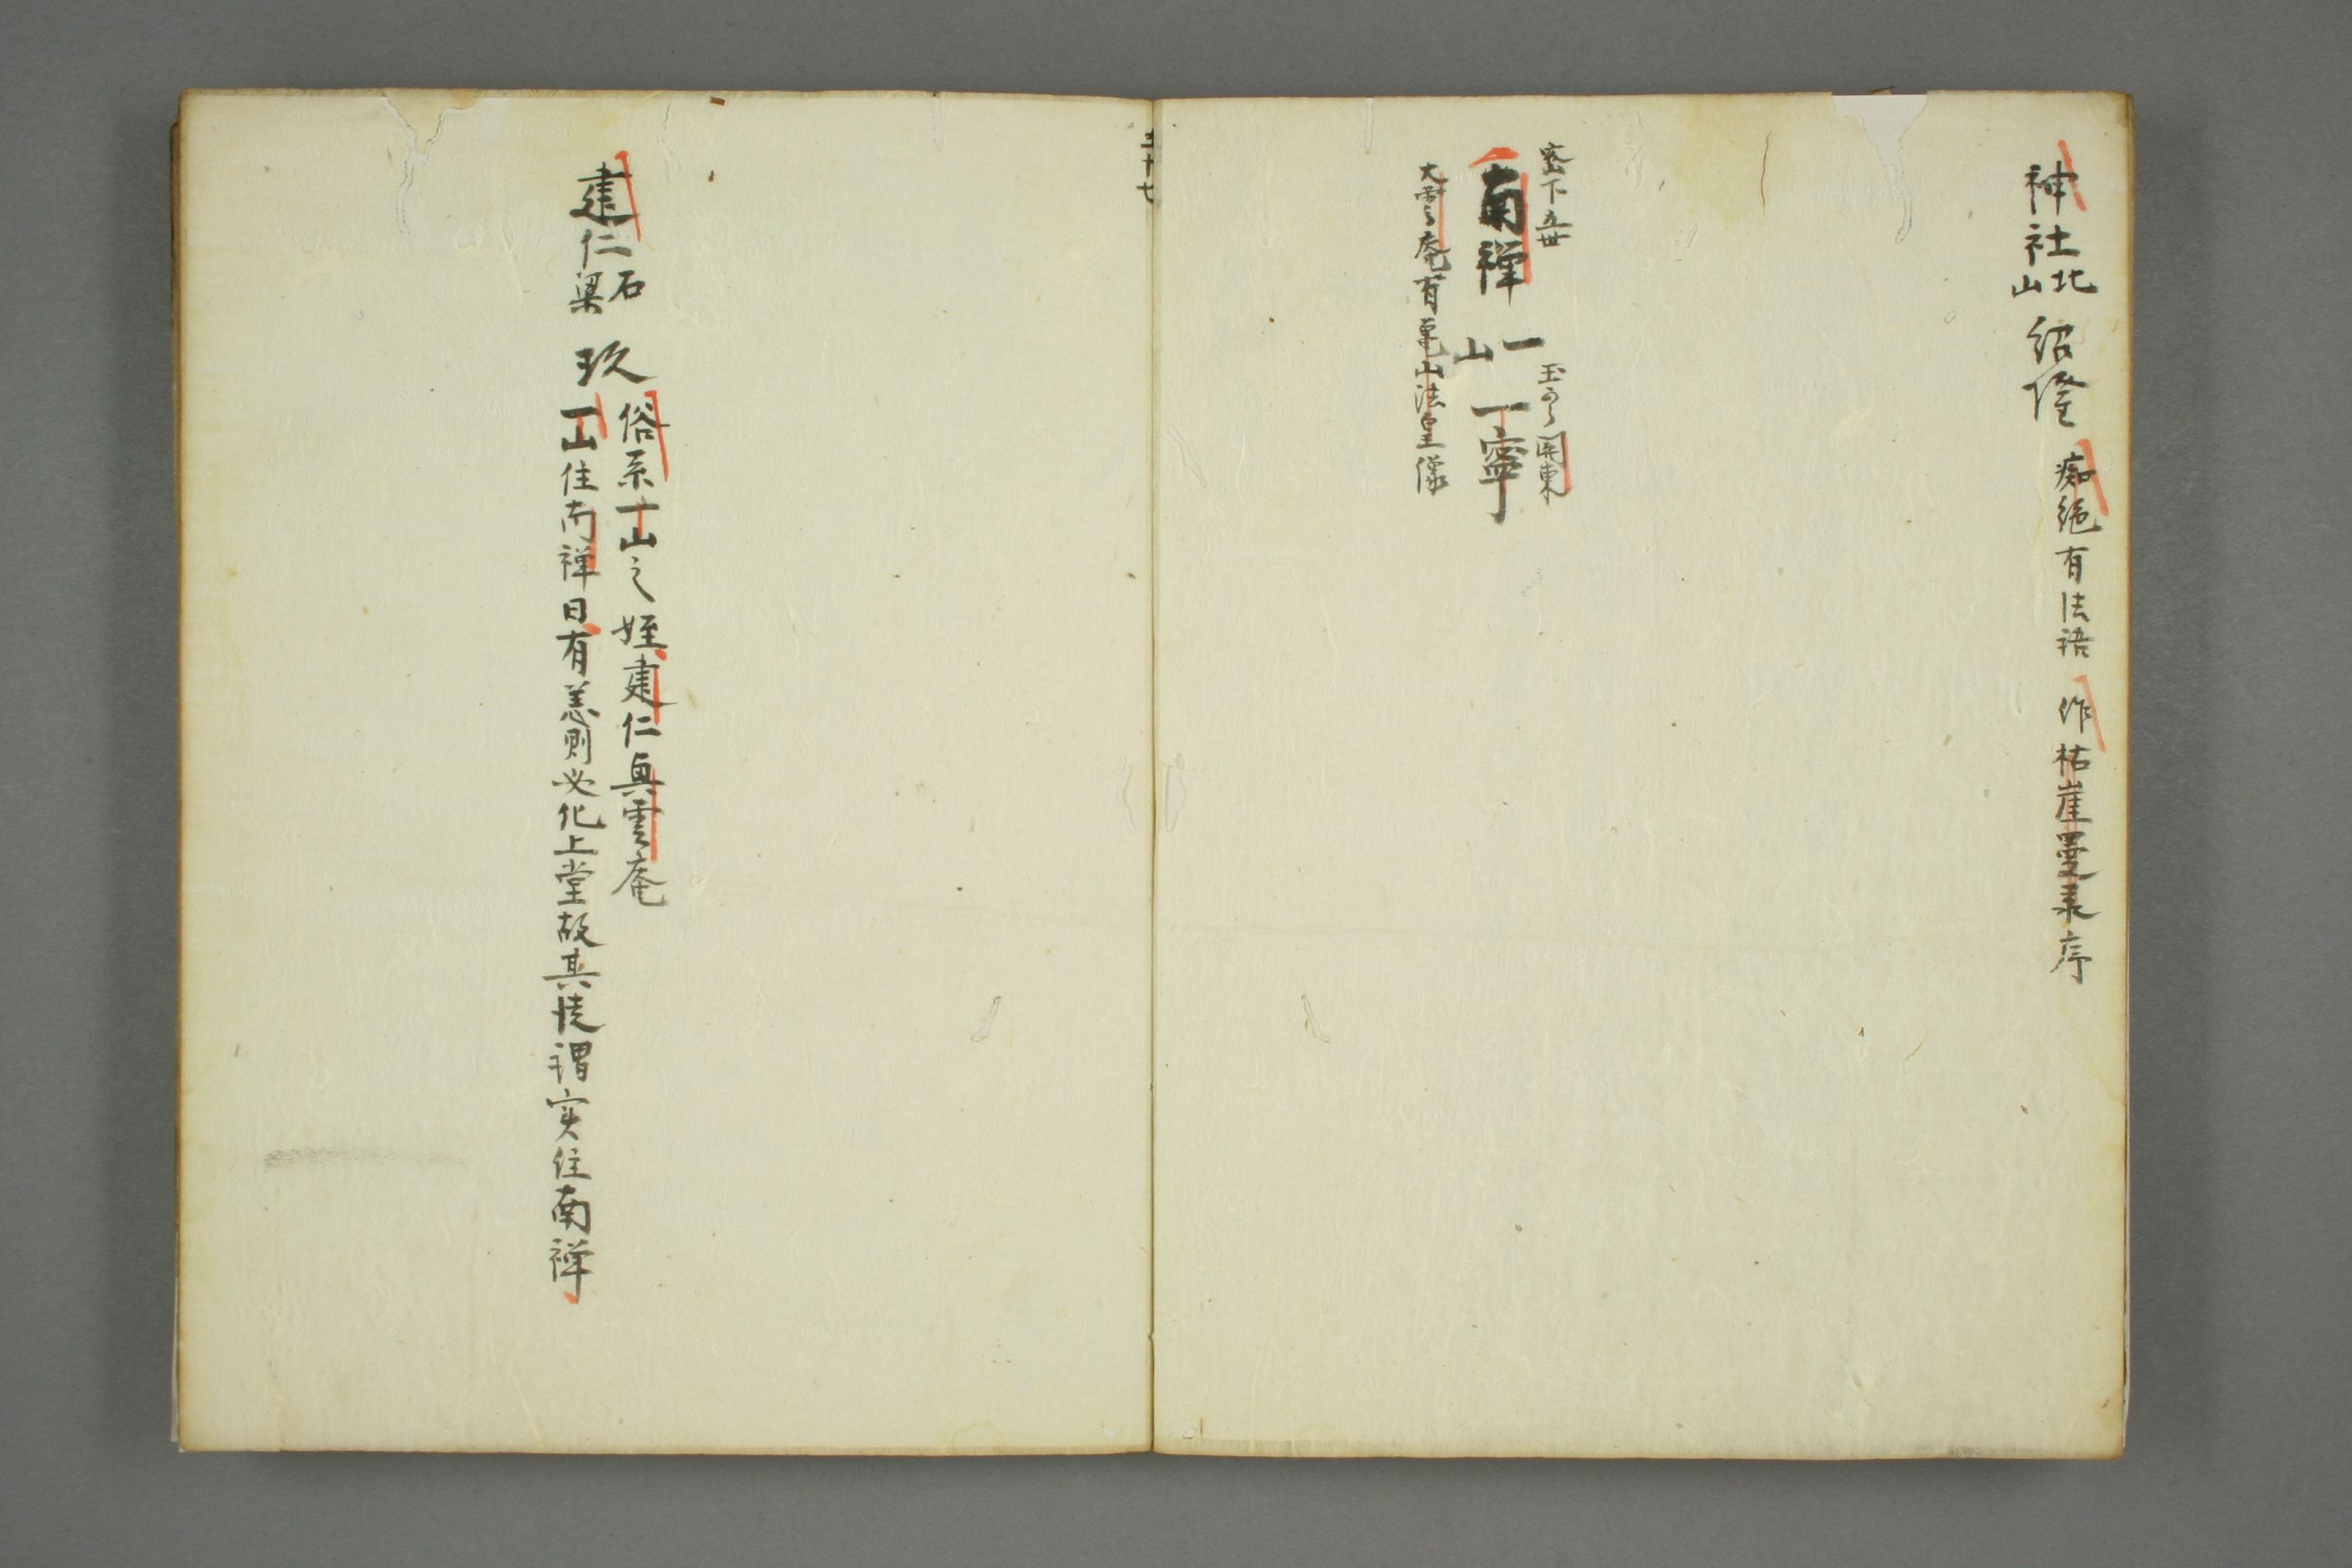 神社 北山 紹隆 痴絶有法語 作枯崖曼录序
密下五世
南禅 一山 一寧
玉 関東
大雲庵有亀山法皇像
五十七
建仁 石梁 玖
俗系一山之姪建仁興雲庵
一山住南禅日有恙則必化上堂故其徒謂实住南禅